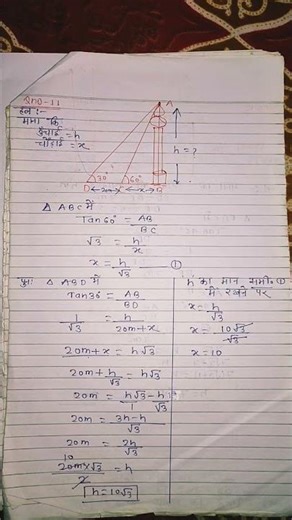 प्रश्न-11
हल :-
माना कि
ऊंचाई = h
चौड़ाई = x
A
h = ?
30° 60°
D 20m C x B
△ ABC में
Tan60° = AB/BC
√3 = h/x
x = h/√3 ①
पुनः △ ABD में
Tan30° = AB/BD
1/√3 = h/20m+x
20m+x = h√3
20m + h/√3 = h√3
20m = h√3/1 - h/√3
20m = 3h-h/√3
20m = 2h/√3
10
20m×√3/2 = h
h = 10√3
h का मान समी० ①
में रखने पर
x = h/√3
x = 10√3/√3
x = 10